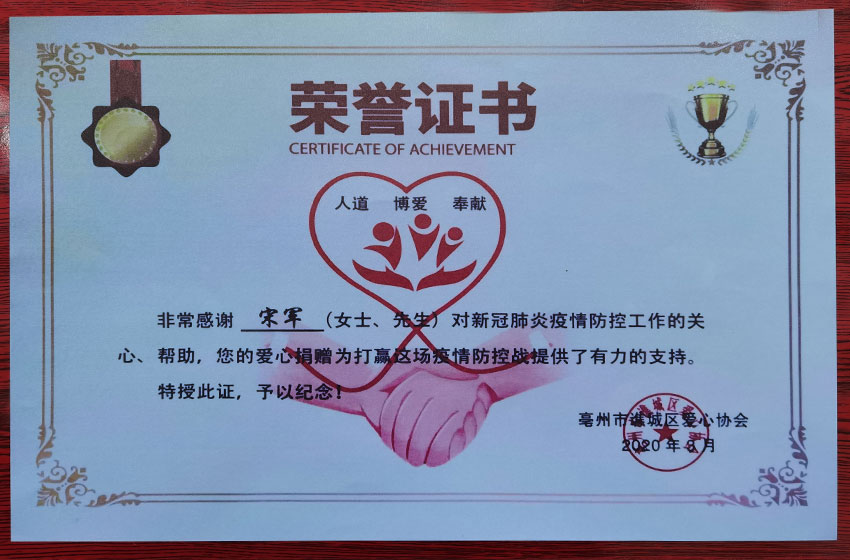 荣誉证书
CERTIFICATE OF ACHIEVEMENT
人道 博爱 奉献
非常感谢 宋军 (女士、先生) 对新冠肺炎疫情防控工作的关
心、帮助，您的爱心捐赠为打赢这场疫情防控战提供了有力的支持。
特授此证，予以纪念！
亳州市谯城区爱心协会
2020 年 月